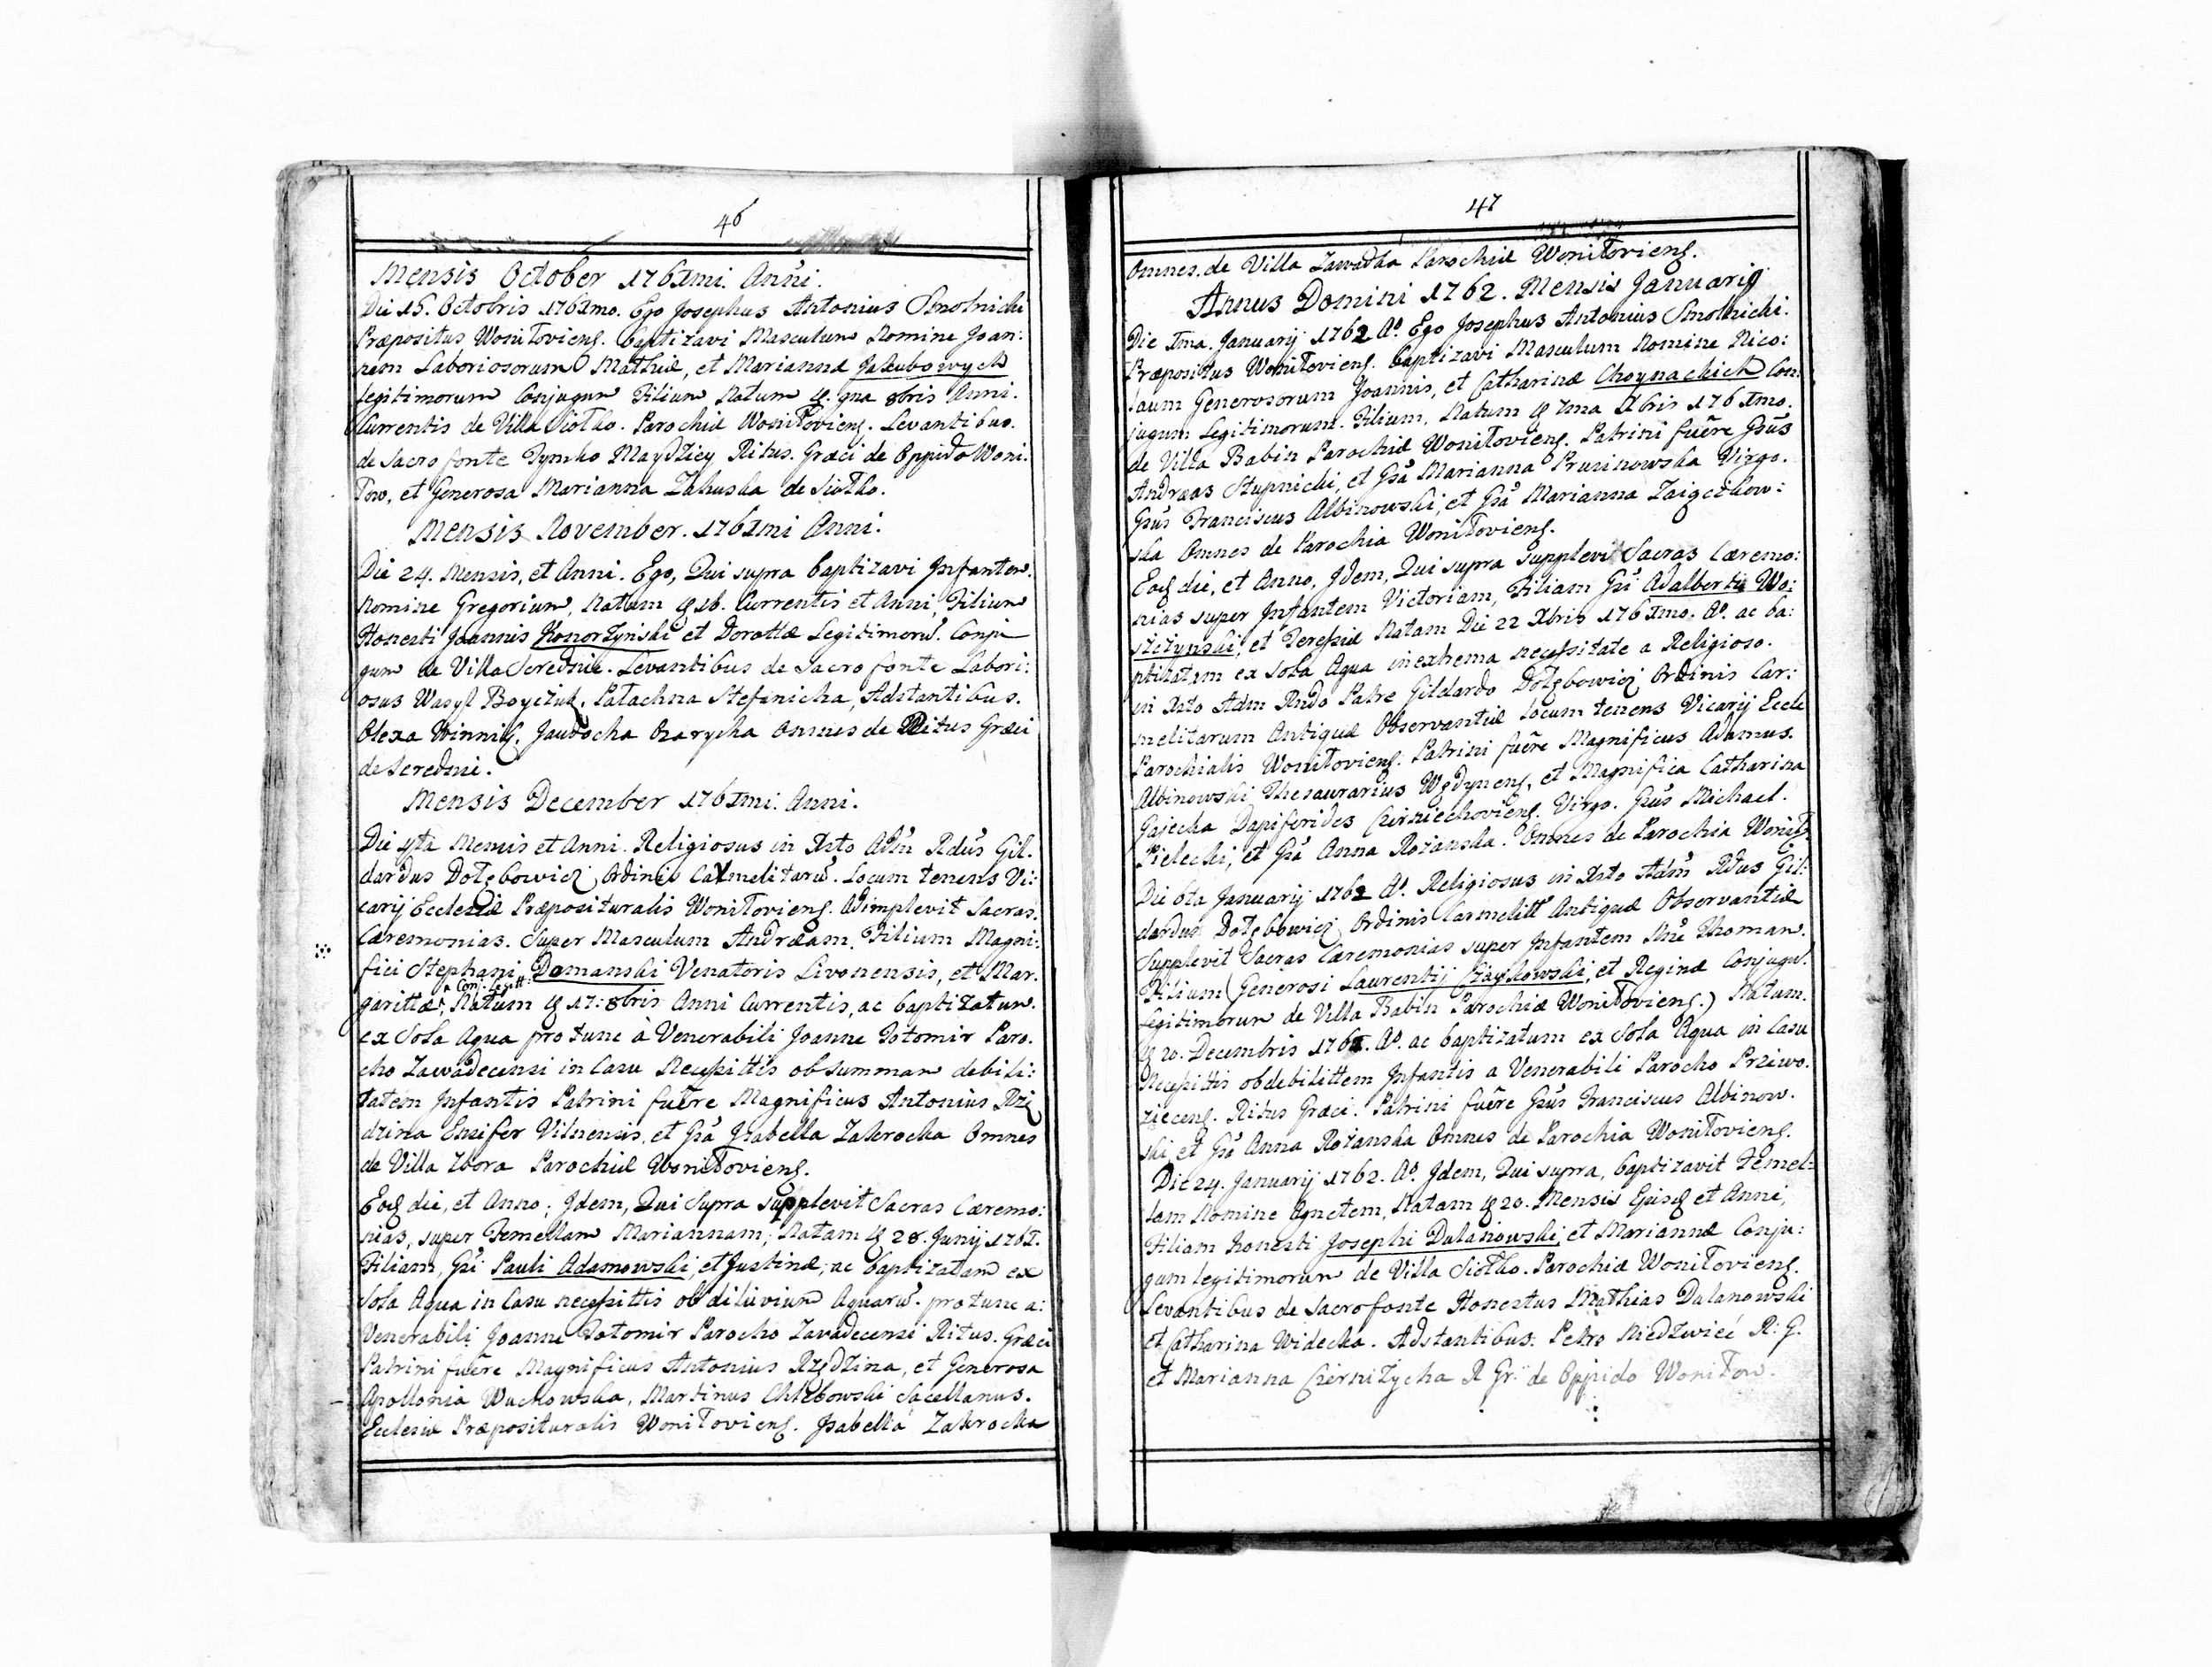 46
Mensis October 1761mi. Anni.
Die 15. Octobris 1761mo. Ego Josephus Antonius Smolnicki
Præpositus Woniłoviens. baptizavi Masculum Nomine Joan:
nem Laboriosorum Mathiæ, et Mariannæ Jakubowych
legitimorum Conjugum Filium Natum 9na 8bris Anni.
Currentis de Villa Siołko. Parochiæ Woniłoviens. Levantibus.
de Sacro fonte Tymko Maydźicy Ritus. Græci de Oppido Woni:
łow, et Generosa Marianna Zahuska de Siołko.
Mensis November. 1761mi Anni.
Die 24. Mensis, et Anni. Ego, Qui supra baptizavi Infantem.
Nomine Gregorium, Natum 16. Currentis et Anni, Filium
Honesti Joannis Konorżyński et Dorothæ Legitimorũ. Conju
gum de Villa Serednie. Levantibus de Sacro fonte Labori:
osus Wasyl Boyciuk, Patachna Stefanicha, Adstantibus.
Olexa Winnik, Jaudocha Ozarycha Omnes de Ritus Græci
de Seredni.
Mensis December 1761mi. Anni.
Die 4ta Mensis et Anni. Religiosus in Xsto Adm̃ Rd̃us Gil.
dardus Dołębowicz Ordinis Carmelitarũ. Locum tenens Vi:
carij Ecclesiæ Præposituralis Woniłoviens. Adimplevit Sacras.
Cæremonias. Super Masculum Andræam, Filium Magni:
fici Stephani Domanski Venatoris Livonensis, et Mar.
a Conj. Legitt:
garittæ, Natum 17: 8bris Anni Currentis, ac baptizatum.
ex Sola Aqua pro tunc à Venerabili Joanne Dotomir Paro.
cho Zawadecensi in Casu Necessittis ob summam debili:
tatem Infantis Patrini fuẽre Magnificus Antonius Rzę
dzina Ensifer Vilnensis, et Gsã Isabella Zakrocka Omnes
de Villa Zbora Parochiæ Woniłoviens.
Eod die, et Anno; Idem, Qui Supra supplevit Sacras Cæremo:
nias, super Femellam Mariannam, Natam 28. Junij 1761.
Filiam, Gsi Pauli Adamowski, et Justinæ, ac baptizatam ex
Sola Aqua in Casu necessittis ob diluvium Aquarũ. pro tunc a:
Venerabili Joanne Dotomir Parocho Zavadecensi Ritus. Græci
Patrini fuẽre Magnificus Antonius Rzędzina, et Generosa
Apollonia Wuchowska, Martinus Chlebowski Sacellanus.
Ecclesiæ Præposituralis Woniłoviens. Isabella Zakrocka
47
Omnes. de Villa Zawadka Parochiæ Woniłoviens.
Annus Domini 1762. Mensis Januarij
Die 1ma. Januarij 1762 A°. Ego Josephus Antonius Smolnicki.
Præpositus Woniłoviens. baptizavi Masculum Nomine Nico:
laum Generosorum Joannis, et Catharinæ Choynackich Con:
jugum Legitimorum. Filium, Natum 7ma Xbris 1761mo.
de Villa Babin Parochiæ Woniłoviens. Patrini fuẽre Gsus
Andræas Stupnicki, et Gsã Marianna Prusinowska Virgo.
Gsus Franciscus Albinowski, et Gsã Marianna Zaigczkow:
ska Omnes de Parochia Woniłoviens.
Eod die, et Anno, Idem, Qui supra supplevit Sacras Cæremo:
nias super Infantem Victoriam, Filiam Gsi Adalberti Wo:
szczynski, et Teressiæ Natam Die 22 Xbris 1761mo. A°. ac ba:
ptizatam ex Sola Aqua in extrema necessitate a Religioso.
in Xsto Adm Rndo Patre Gildardo Dołębowicz Ordinis Car:
melitarum Antiquæ Observantiæ locum tenens Vicarij Eccle
Parochialis Woniłoviens. Patrini fuẽre Magnificus Adamus.
Albinowski Thesaurarius Wędynens, et Magnifica Catharina
Gajecka Dapiferides Czerniechoviens. Virgo. Gsus Michael.
Pielecki, et Gsã Anna Rożanska. Omnes de Parochia Wonił
Die 6ta Januarij 1762 A°. Religiosus in Xsto Adm̃ Rdus Gil:
dardus Dołębowicz Ordinis Carmelitt Antiquæ Observantiæ
Supplevit Sacras Cæremonias super Infantem Nñe Thomam.
Filium (Generosi Laurentij Czaykowski, et Reginæ Conjugũ.
Legitimorum de Villa Babin Parochiæ Woniłoviens.) Natum.
20. Decembris 1761. A°. ac baptizatum ex Sola Aqua in Casu
Necessittis ob debilittem Infantis a Venerabili Parocho Przewo.
ziecens. Ritus Græci. Patrini fuẽre Gsus Franciscus Albinow.
ski, et Gsã Anna Rożanska Omnes de Parochia Woniłoviens.
Die 24. Januarij 1762. A°. Idem, Qui supra, baptizavit Femel:
lam Nomine Agnetem, Natam 20. Mensis Ejusd et Anni,
Filiam honesti Josephi Dulanowski, et Mariannæ Conju:
gum legitimorum de Villa Siołko. Parochiæ Woniłoviens.
Levantibus de Sacro fonte Honestus Mathias Dulanowski
et Catharina Widecka. Adstantibus: Petro Niedźwieć R: G.
et Marianna Czerniżycha R Gr: de Oppido Woniłow.